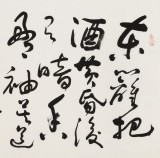 东篱把
酒黄昏后
有暗香
盈袖莫道